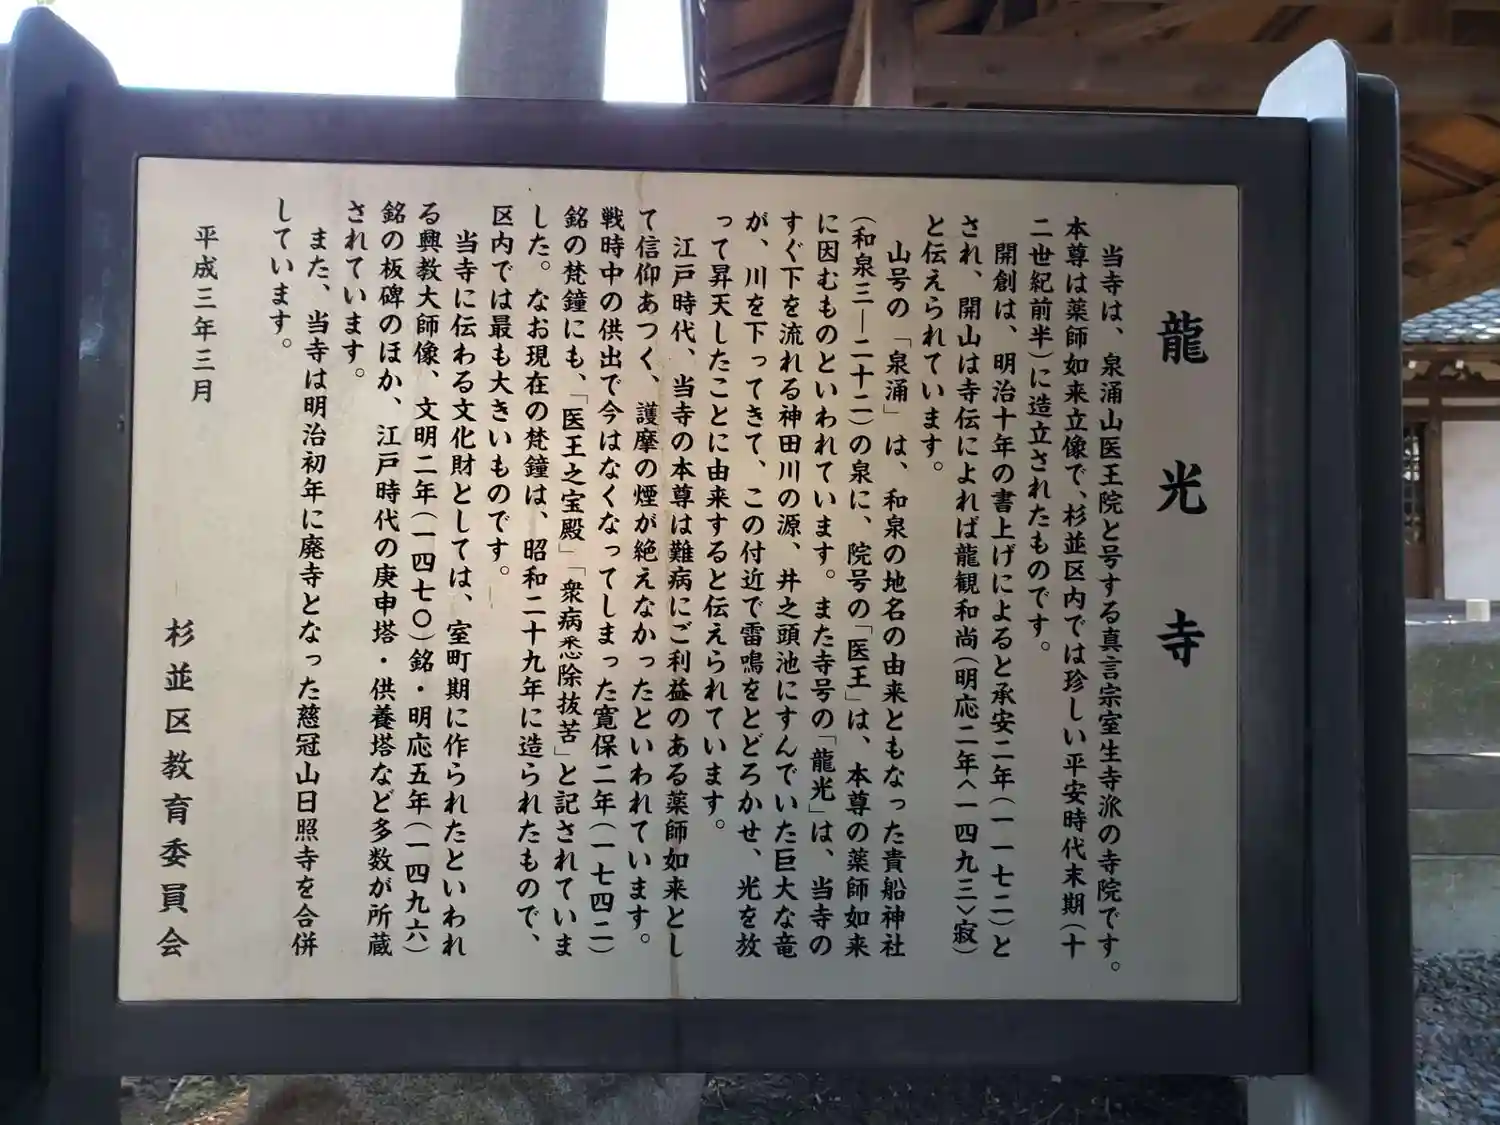 龍光寺
当寺は、泉涌山医王院と号する真言宗室生寺派の寺院です。
本尊は薬師如来立像で、杉並区内では珍しい平安時代末期(十
二世紀前半)に造立されたものです。
開創は、明治十年の書上げによると承安二年(一一七二)と
され、開山は寺伝によれば龍観和尚(明応二年<一四九三>寂)
と伝えられています。
山号の「泉涌」は、和泉の地名の由来ともなった貴船神社
(和泉三―二十二)の泉に、院号の「医王」は、本尊の薬師如来
に因むものといわれています。また寺号の「龍光」は、当寺の
すぐ下を流れる神田川の源、井之頭池にすんでいた巨大な竜
が、川を下ってきて、この付近で雷鳴をとどろかせ、光を放
って昇天したことに由来すると伝えられています。
江戸時代、当寺の本尊は難病にご利益のある薬師如来とし
て信仰あつく、護摩の煙が絶えなかったといわれています。
戦時中の供出で今はなくなってしまった寛保二年(一七四二)
銘の梵鐘にも、「医王之宝殿」「衆病悉除抜苦」と記されていま
した。なお現在の梵鐘は、昭和二十九年に造られたもので、
区内では最も大きいものです。
当寺に伝わる文化財としては、室町期に作られたといわれ
る興教大師像、文明二年(一四七〇)銘・明応五年(一四九六)
銘の板碑のほか、江戸時代の庚申塔・供養塔など多数が所蔵
されています。
また、当寺は明治初年に廃寺となった慈冠山日照寺を合併
しています。
平成三年三月
杉並区教育委員会